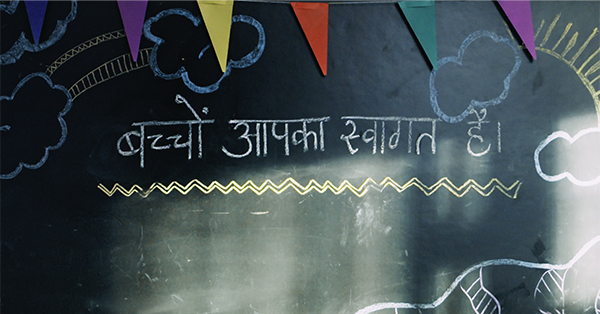 बच्चों आपका स्वागत है।